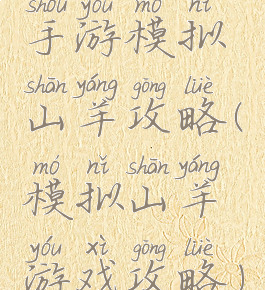 shǒu yóu mó nǐ
手游模拟
shān yáng gōng lüè
山羊攻略(
mó nǐ shān yáng
模拟山羊
yóu xì gōng lüè
游戏攻略)